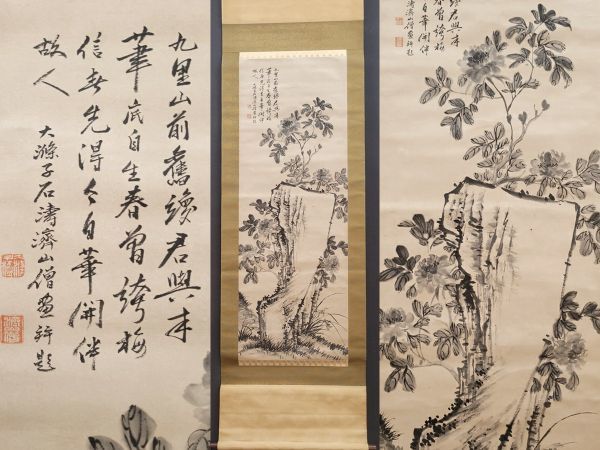 九里山前舊繚君興來
筆底自生春曽誇梅
信春先得々自華開伴
故人
大滌子石濤濟山僧畫并題